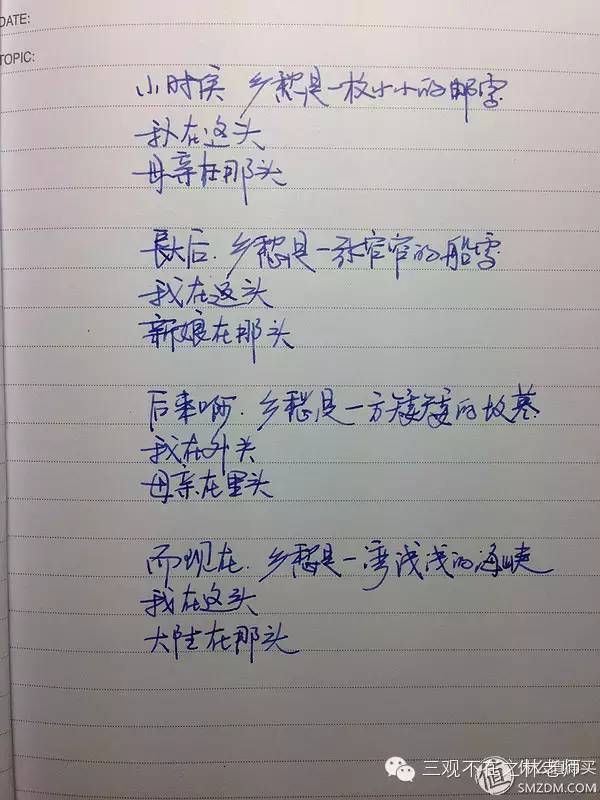 DATE:
TOPIC:
小时候 乡愁是一枚小小的邮票
我在这头
母亲在那头
長大后.乡愁是一张窄窄的船票
我在这头
新娘在那头
后来啊.乡愁是一方矮矮的坟墓
我在外头
母亲在里头
而现在.乡愁是一湾浅浅的海峡
我在这头
大陆在那头
三观不在之林老师
值 什么值得买
SMZDM.COM